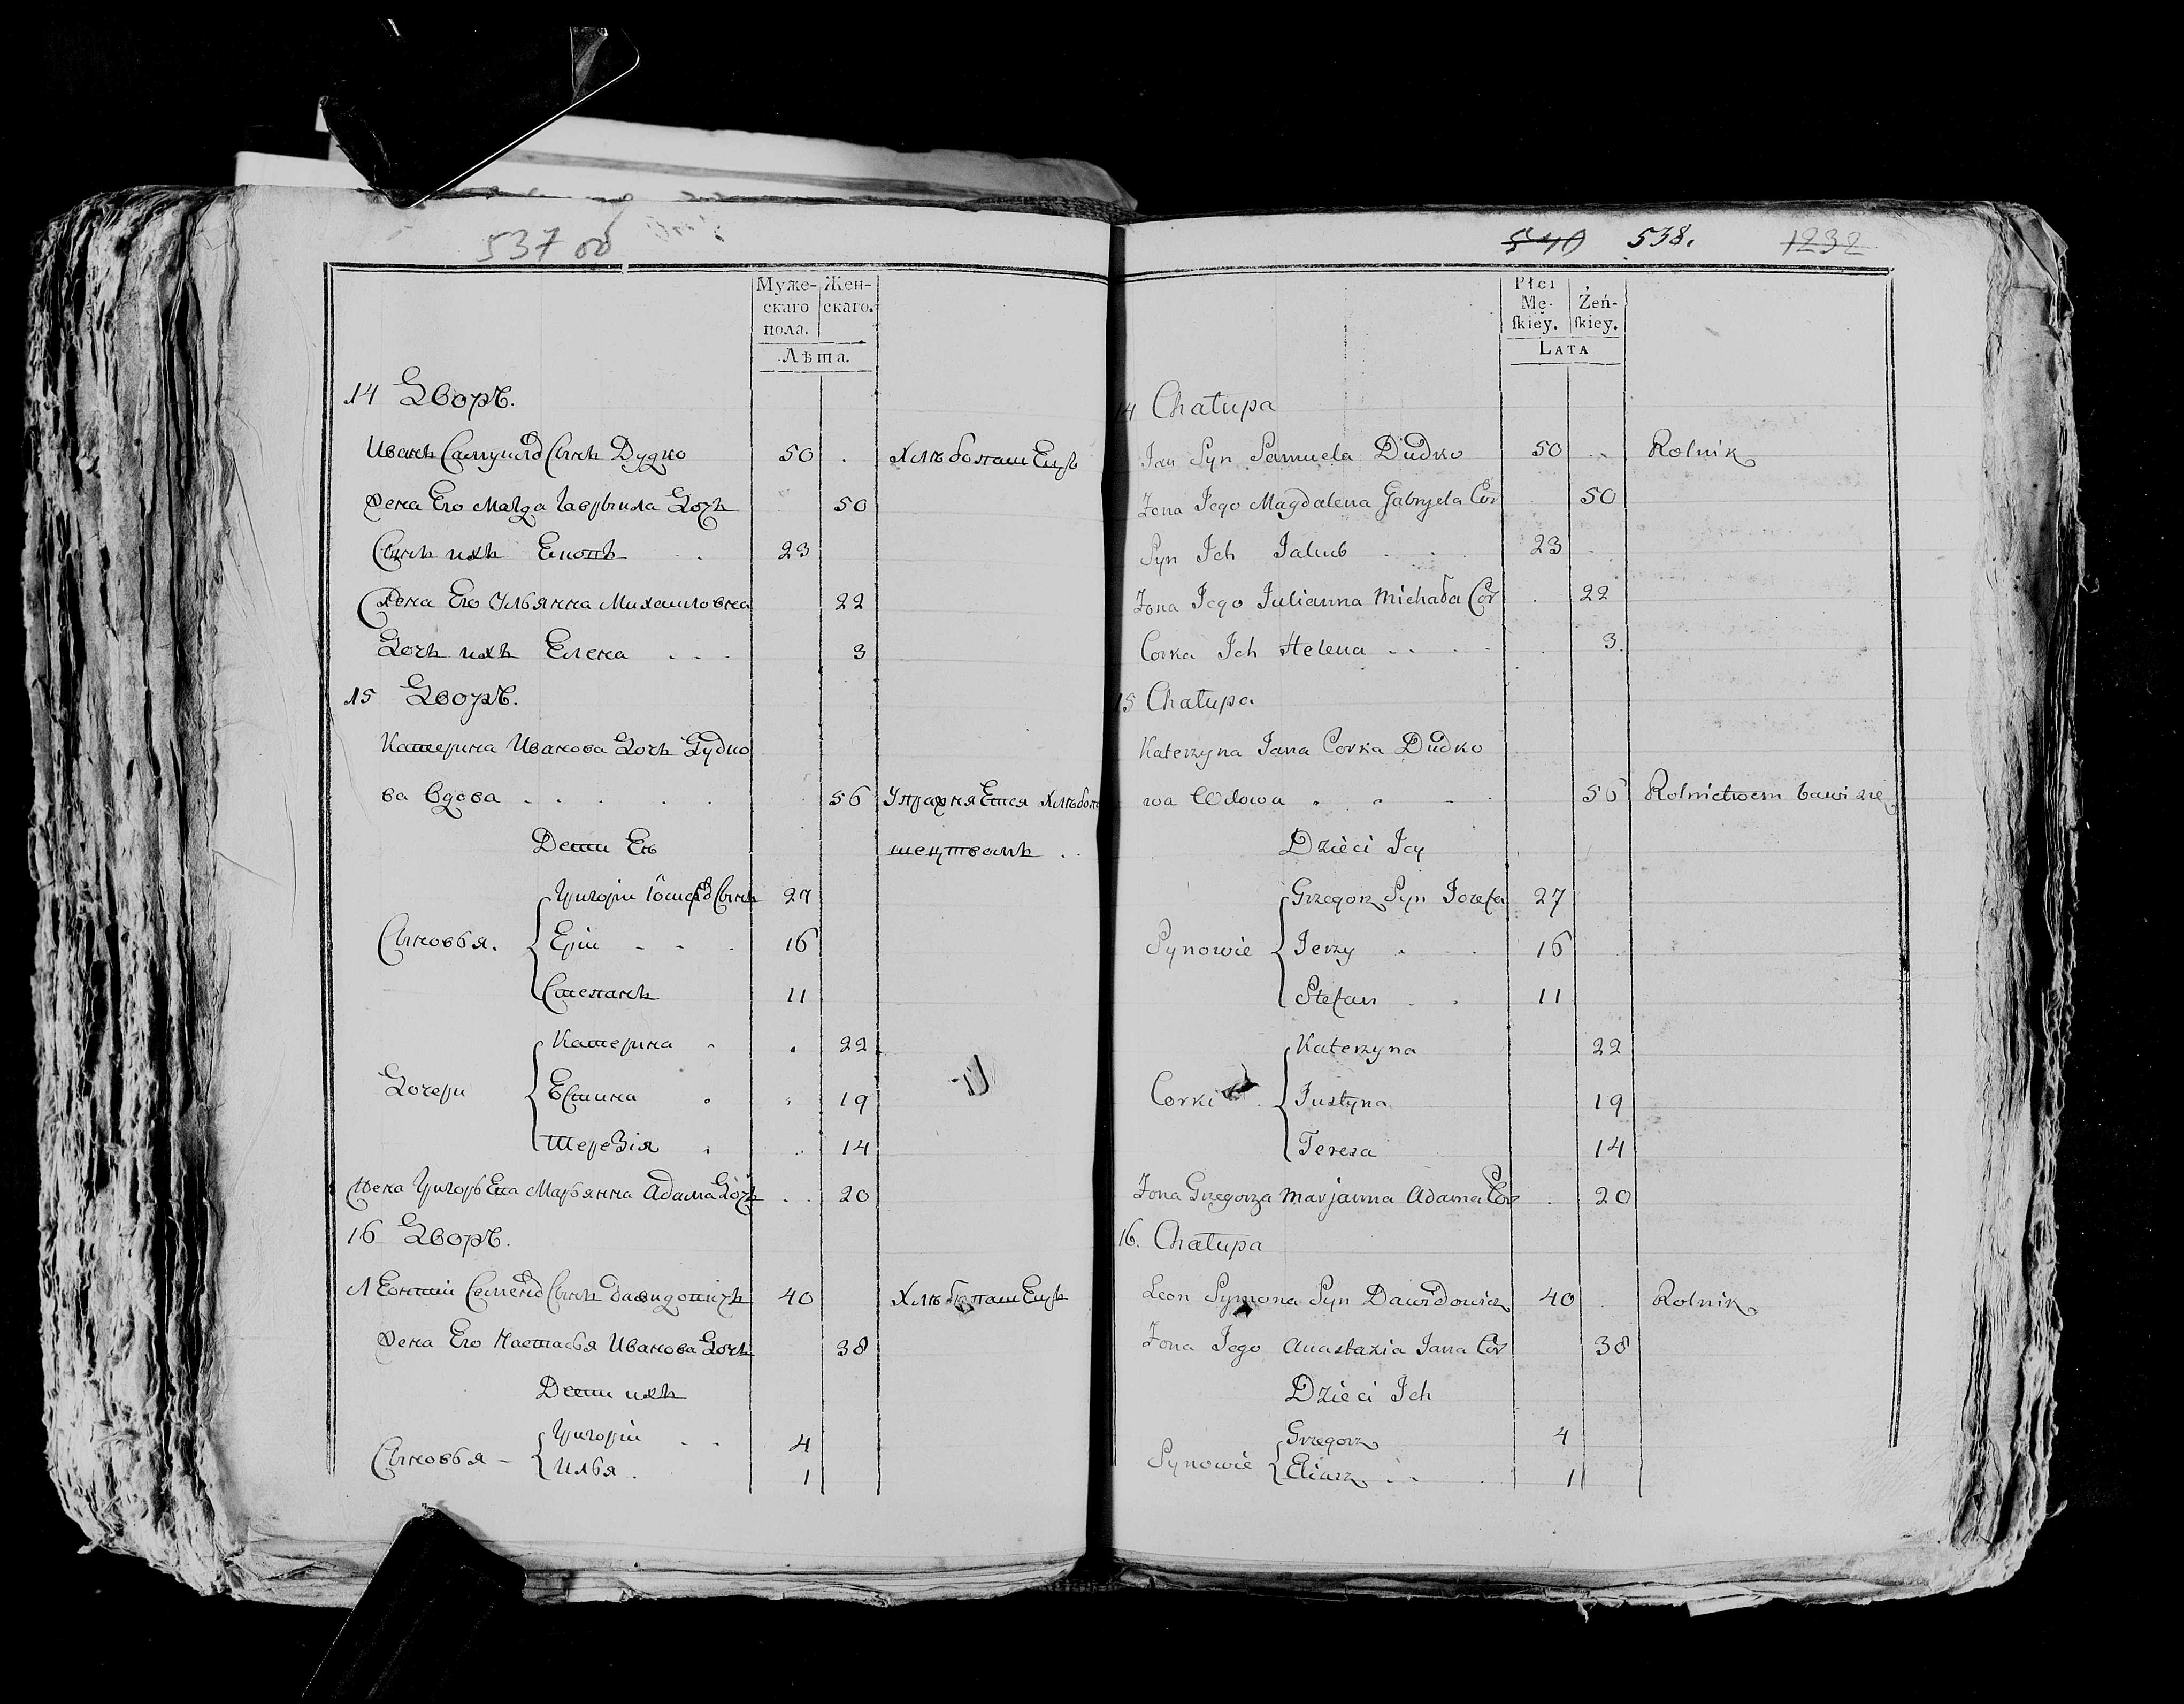 537 об
Муже-
скаго
пола.
Жен-
скаго.
Лѣта.
14 Дворъ.
Иванъ Самуила Сынъ Дудко 50 . Хлѣбопашецъ
Жена Его Магда Гаврыила Дочь 50
Сынъ ихъ . 23
Жена Его Ульянна Михаиловна 22
Дочь ихъ Елена . . . 3
15 Дворъ.
Катерина Иванова Дочь Дудко
ва Вдова . . . . . 56 Упражняется Хлѣбопа
шецтвомъ . .
Дети Еѣ
Григорій Іосифа Сынъ 27
Сыновья. Ерій - - . 16
Степанъ 11
Катерина . . 22
Дочери . . 19
Терезія . . 14
Жена Григорьева Марьянна Адама Дочь . . 20
16 Дворъ.
Леонтій Семена Сынъ Давидовичъ 40 Хлѣбопашецъ
Жена Его Настасья Иванова Дочь 38
Дети ихъ
Григорій - - 4
Сыновья - Илья . 1
540 538. 1232
Płci
Mę-
ſkiey.
Żeń-
ſkiey.
LATA
14 Chałupa
Jan Syn Samuela Dudko 50 . Rolnik
Zona Jego Magdalena Gabryela Cor 50
Syn Ich Jakub . . 23 .
Zona Jego Julianna Michała Cor . 22
Corka Ich Helena . . . . 3.
15 Chałupa
Katerzyna Jana Corka Dudko
wa Wdowa . . . . 56 Rolnictwem bawi się
Dzieci Jey
Grzegorz Syn Jozefa 27
Synowie Jerzy . . 16
Stefan . . 11
Katerzyna 22
Corki . Justyna 19
Teresa 14
Zona Grzegorza Marjanna Adama Cor . 20
16. Chałupa
Leon Symona Syn Dawidowicz 40 . Rolnik
Zona Jego Anastazia Jana Cor 38
Dzieci Ich
Grzegorz 4
Synowie Eliasz . . . 1